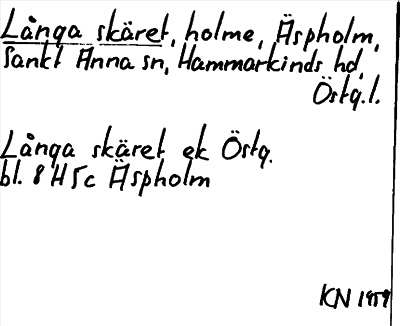 Långa skäret, holme, Äspholm,
Sankt Anna sn, Hammarkinds hd,
Östg.l.
Långa skäret ek Östg.
bl. 8 H 5c Äspholm
KN 1959